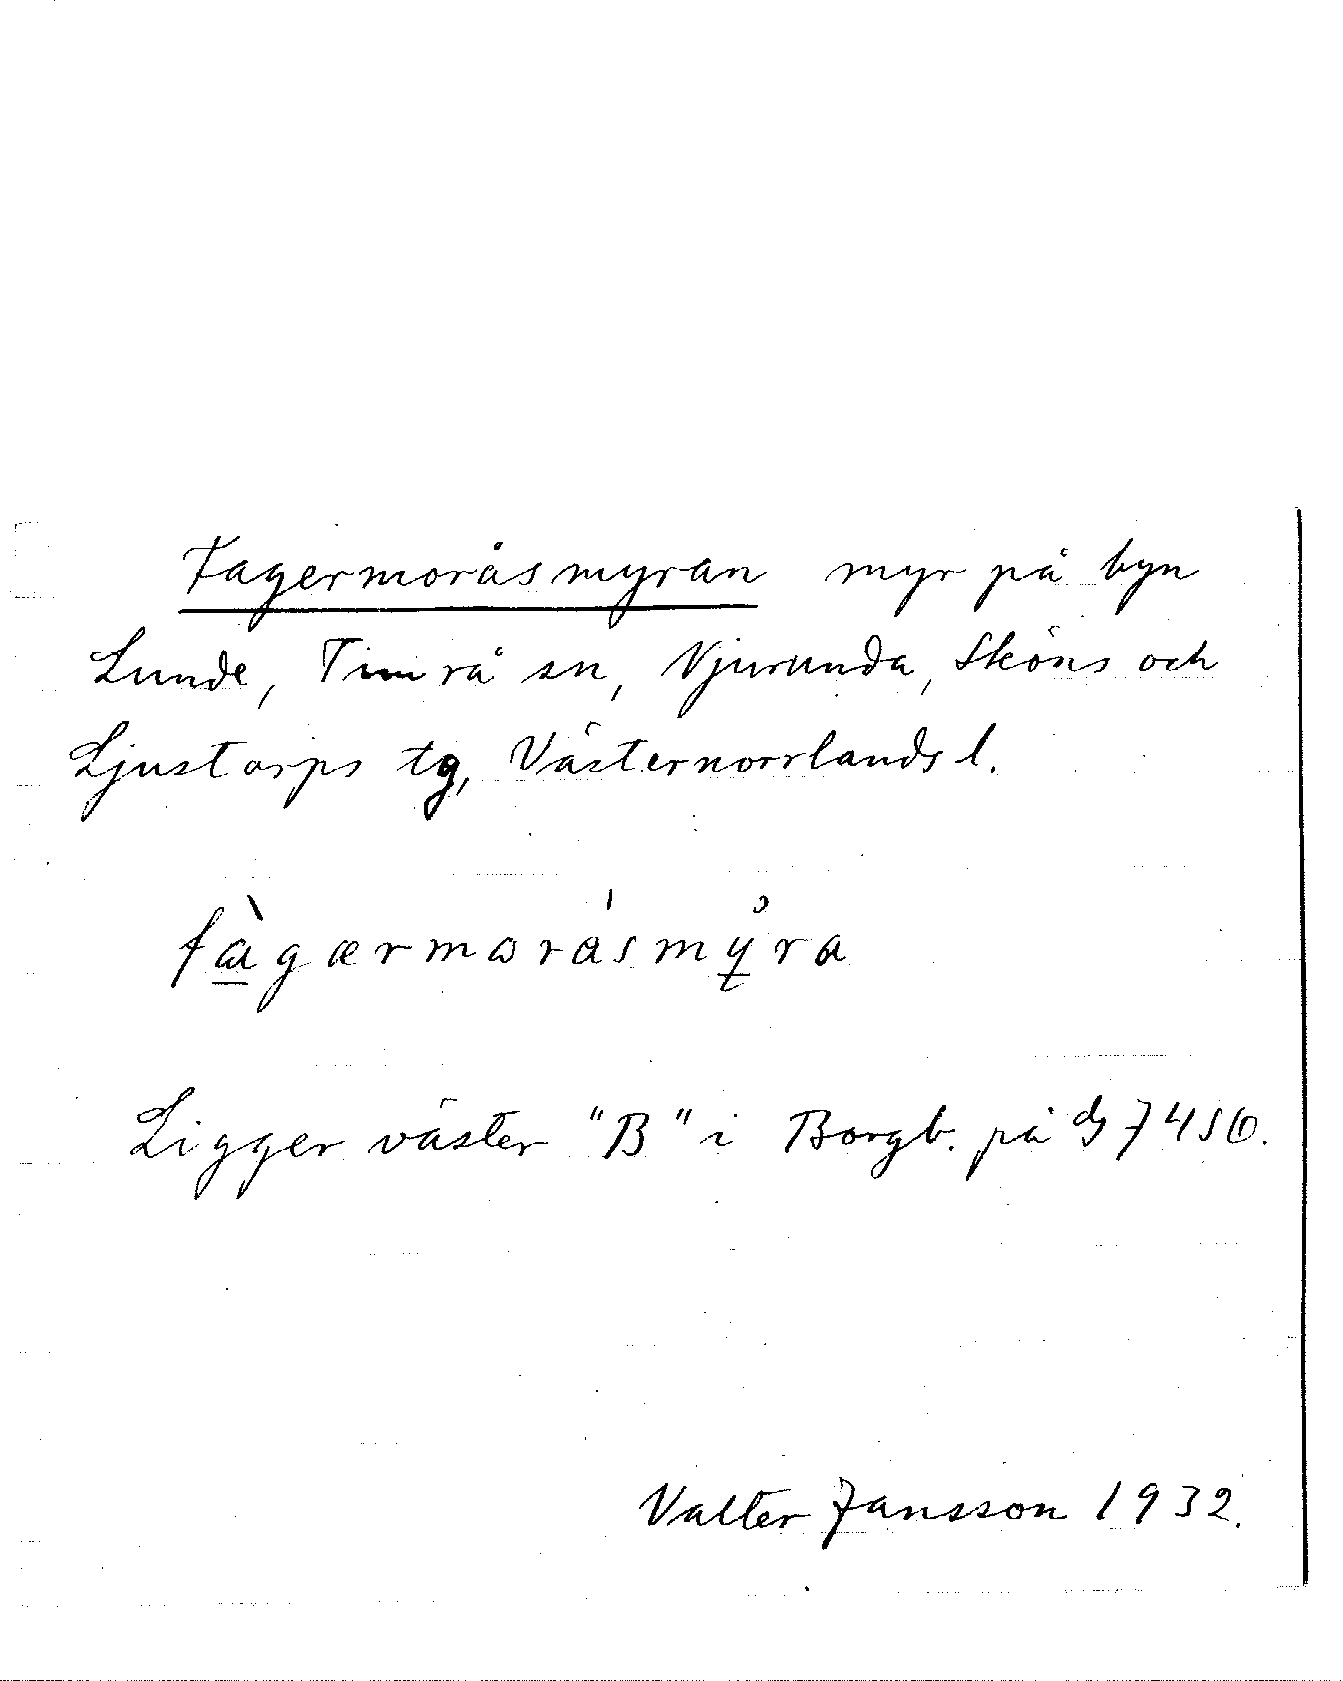 Fagermoråsmyran myr på byn
Lunde, Timrå sn, Njurunda, Sköns och
Ljustorps tg, Västernorrlands l.
fàgærmorásmẙra
Ligger väster "B" i Borgb. på
Valter Jansson 1932.